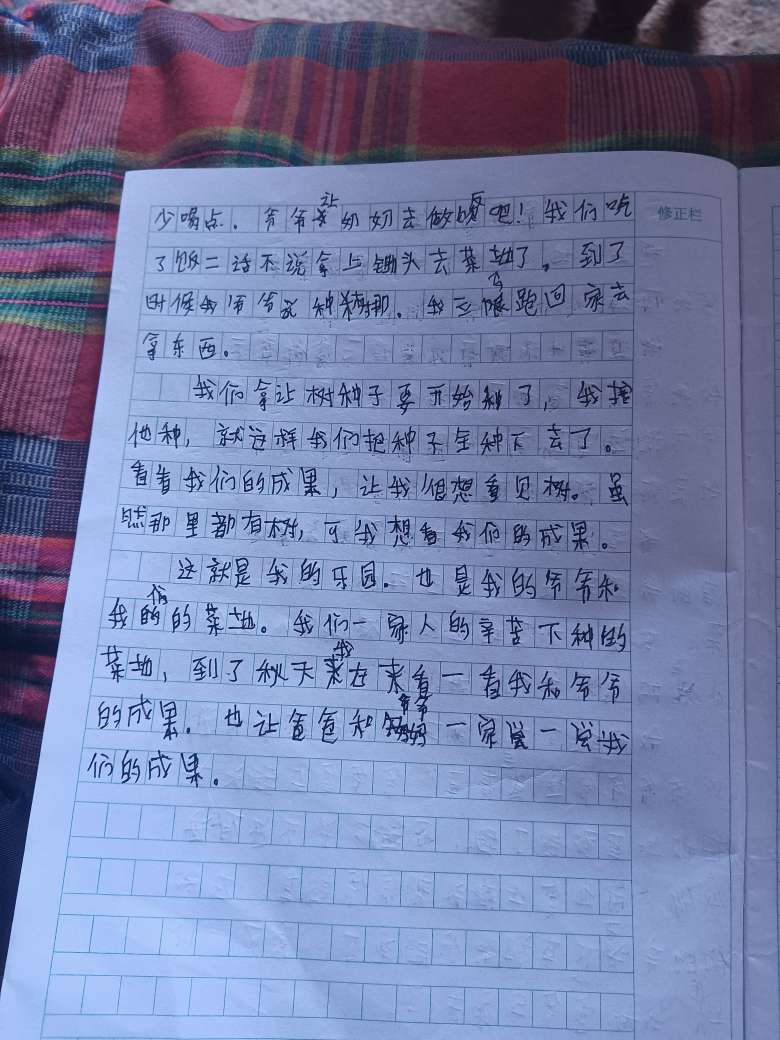 少喝点．爷爷让奶奶去做饭吧！我们吃
修正栏
了饭二话不说拿上锄头去菜地了。到了
时候我爷爷说种树哪．我立马跑回家去
拿东西。
我们拿让树种子要开始种了，我挖
他种，就这样我们把种子全种下去了。
看着我们的成果，让我很想看见树。虽
然那里都有树，可我想看我们的成果。
这就是我的乐园．也是我的爷爷和
我们的菜地。我们一家人的辛苦下种的
菜地，到了秋天我在来看一看我和爷爷
的成果．也让爸爸和爷爷一家尝一尝我
们的成果。